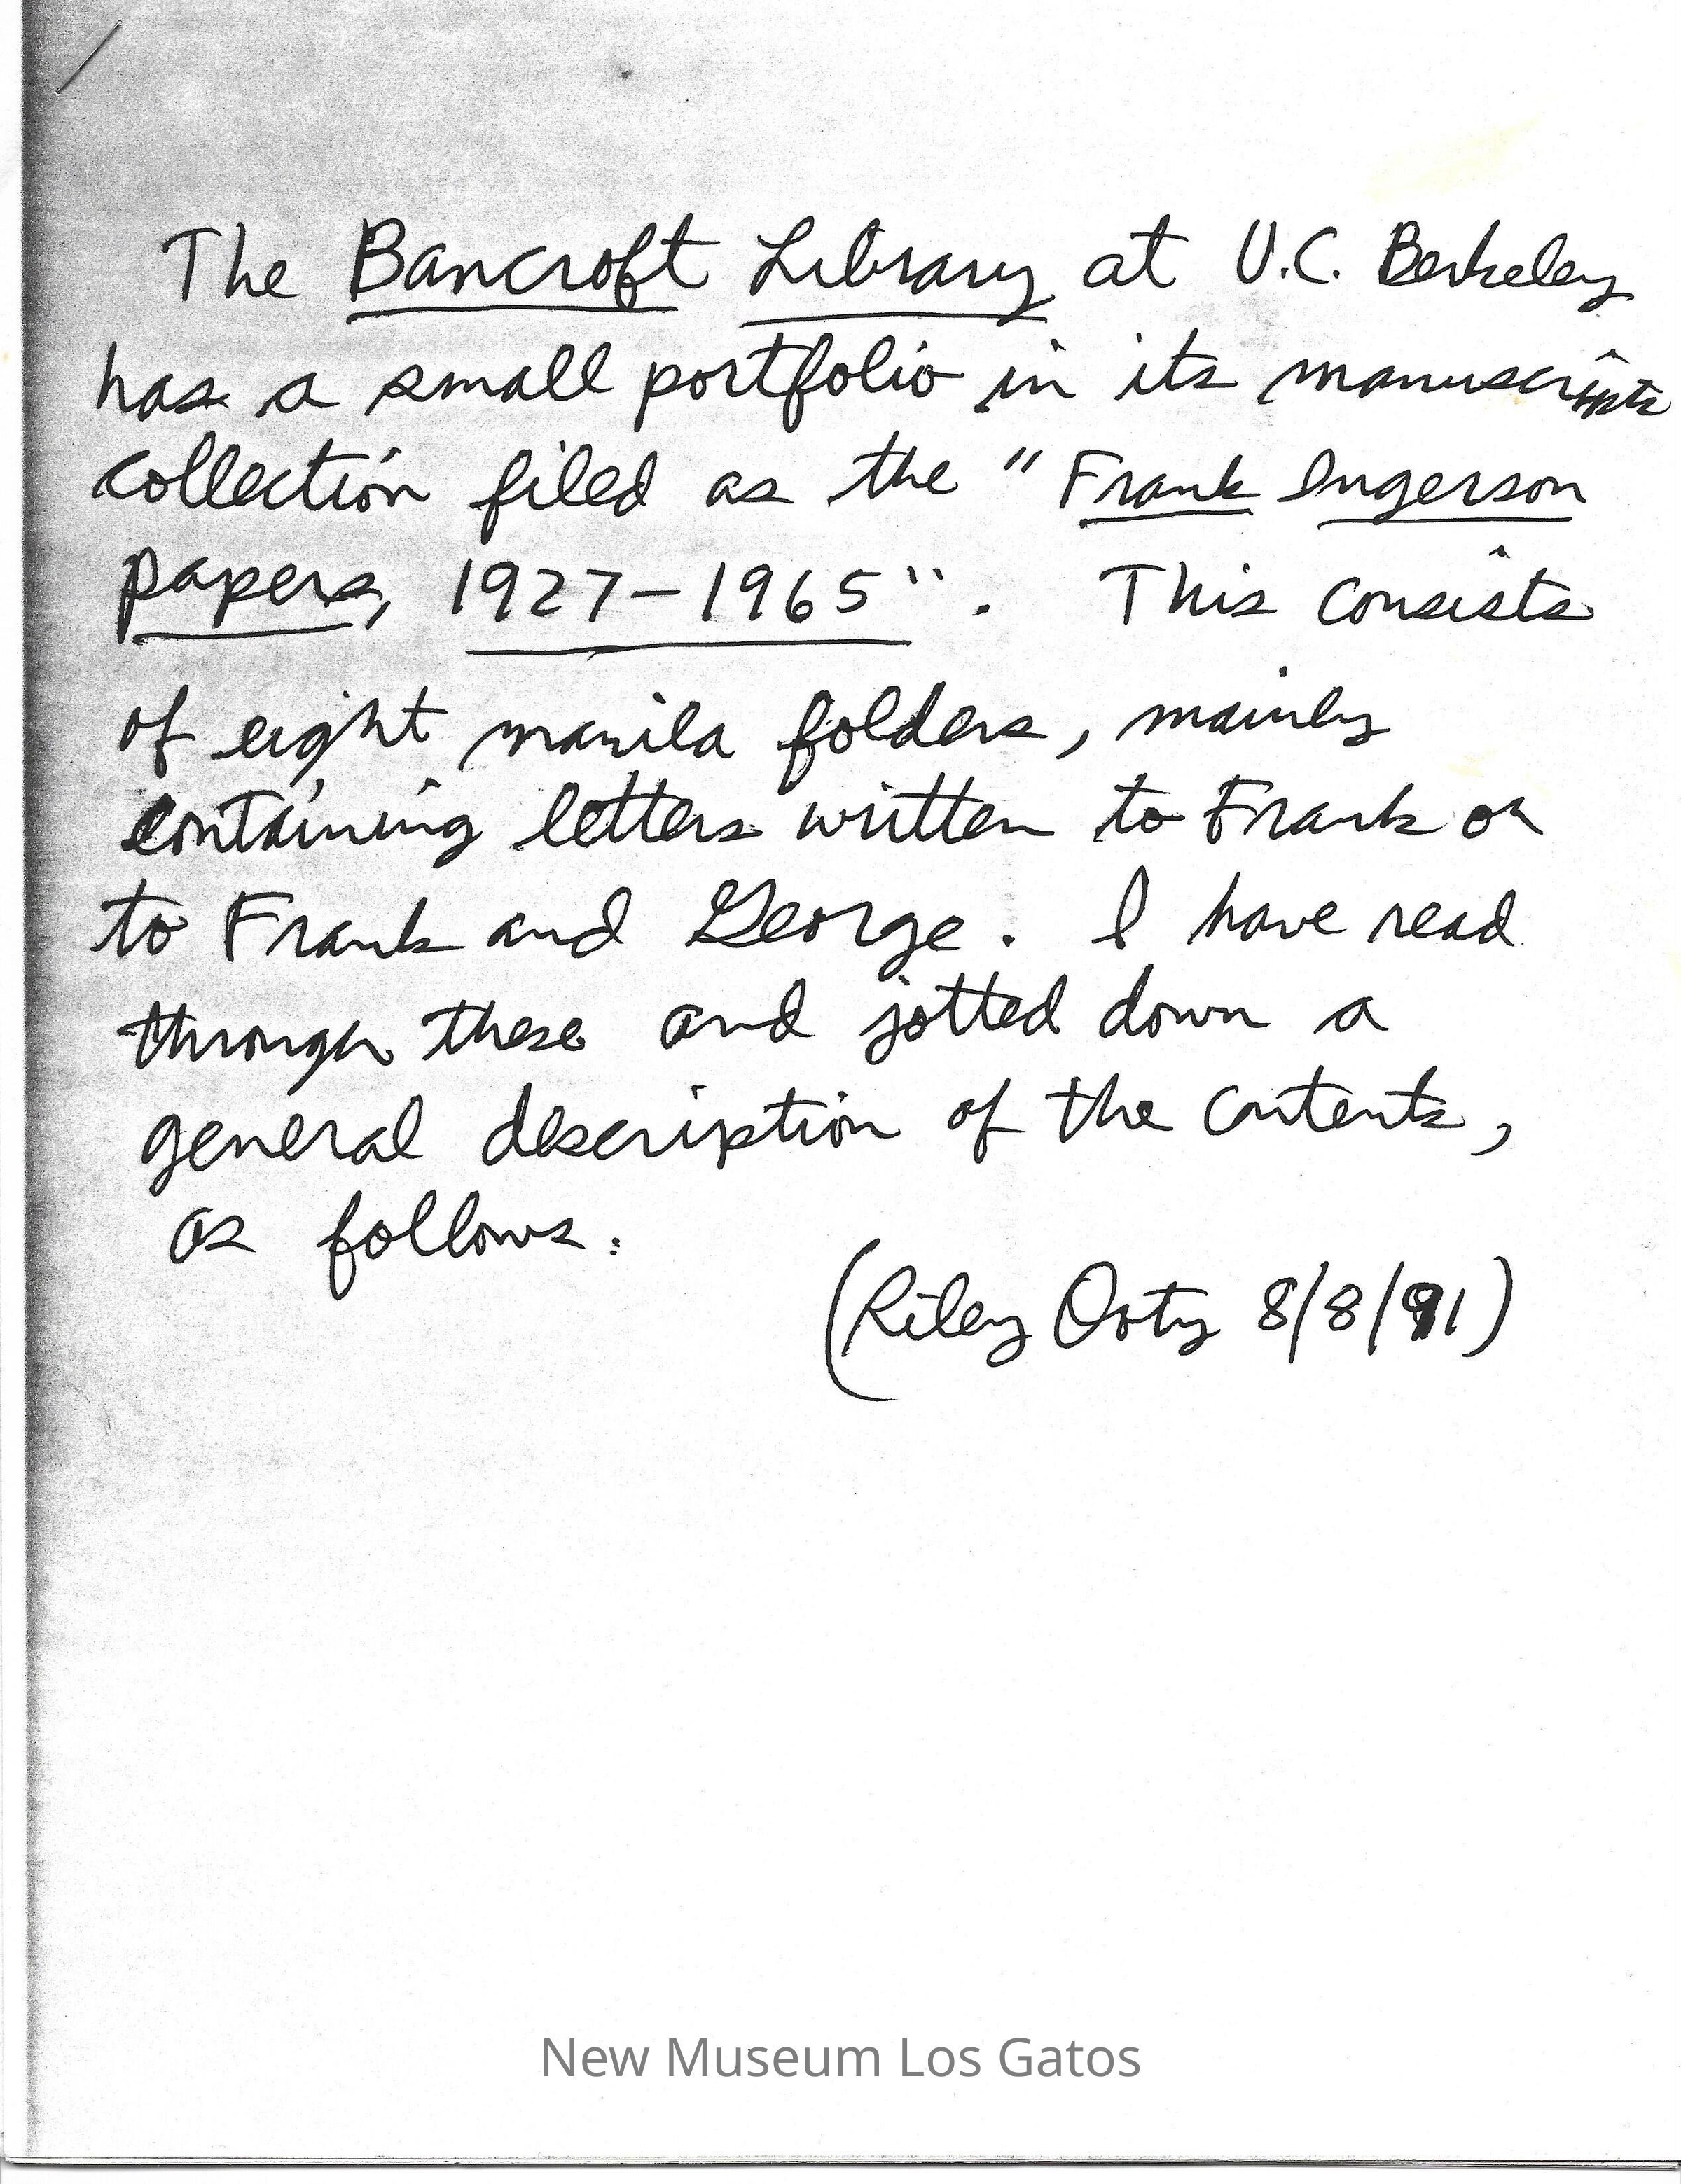 The Bancroft Library at U.C. Berkeley
has a small portfolio in its manuscripts
collection filed as the "Frank Ingerson
papers, 1927-1965". This consists
of eight manila folders, mainly
containing letters written to Frank or
to Frank and George. I have read
through these and jotted down a
general description of the contents,
as follows:
(Riley Doty 8/8/91)
New Museum Los Gatos